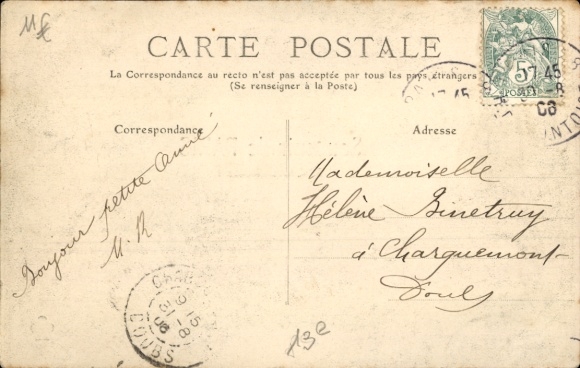 CARTE POSTALE
La Correspondance au recto n'est pas acceptée par tous les pays étrangers
(Se renseigner à la Poste)
5
POSTES
17 45
-8
08
Correspondance
Adresse
Bonjour petite amie
M. R
Mademoiselle
Hélène Binetruy
à Charquemont
Doubs
9 15
31 -8
08
DOUBS
13e